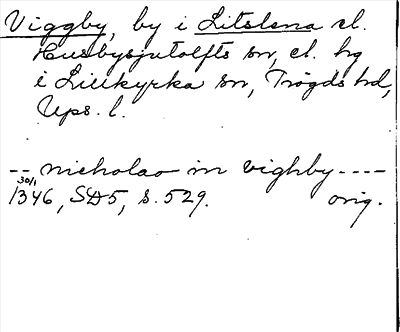 Viggby, by i Litslena el.
Husbysjutolfts sn, el. hg
i Lillkyrka sn, Trögds hd,
Ups. l.
-- nicholao in vighby ----
30/1
1346, SD5, s. 529. orig.